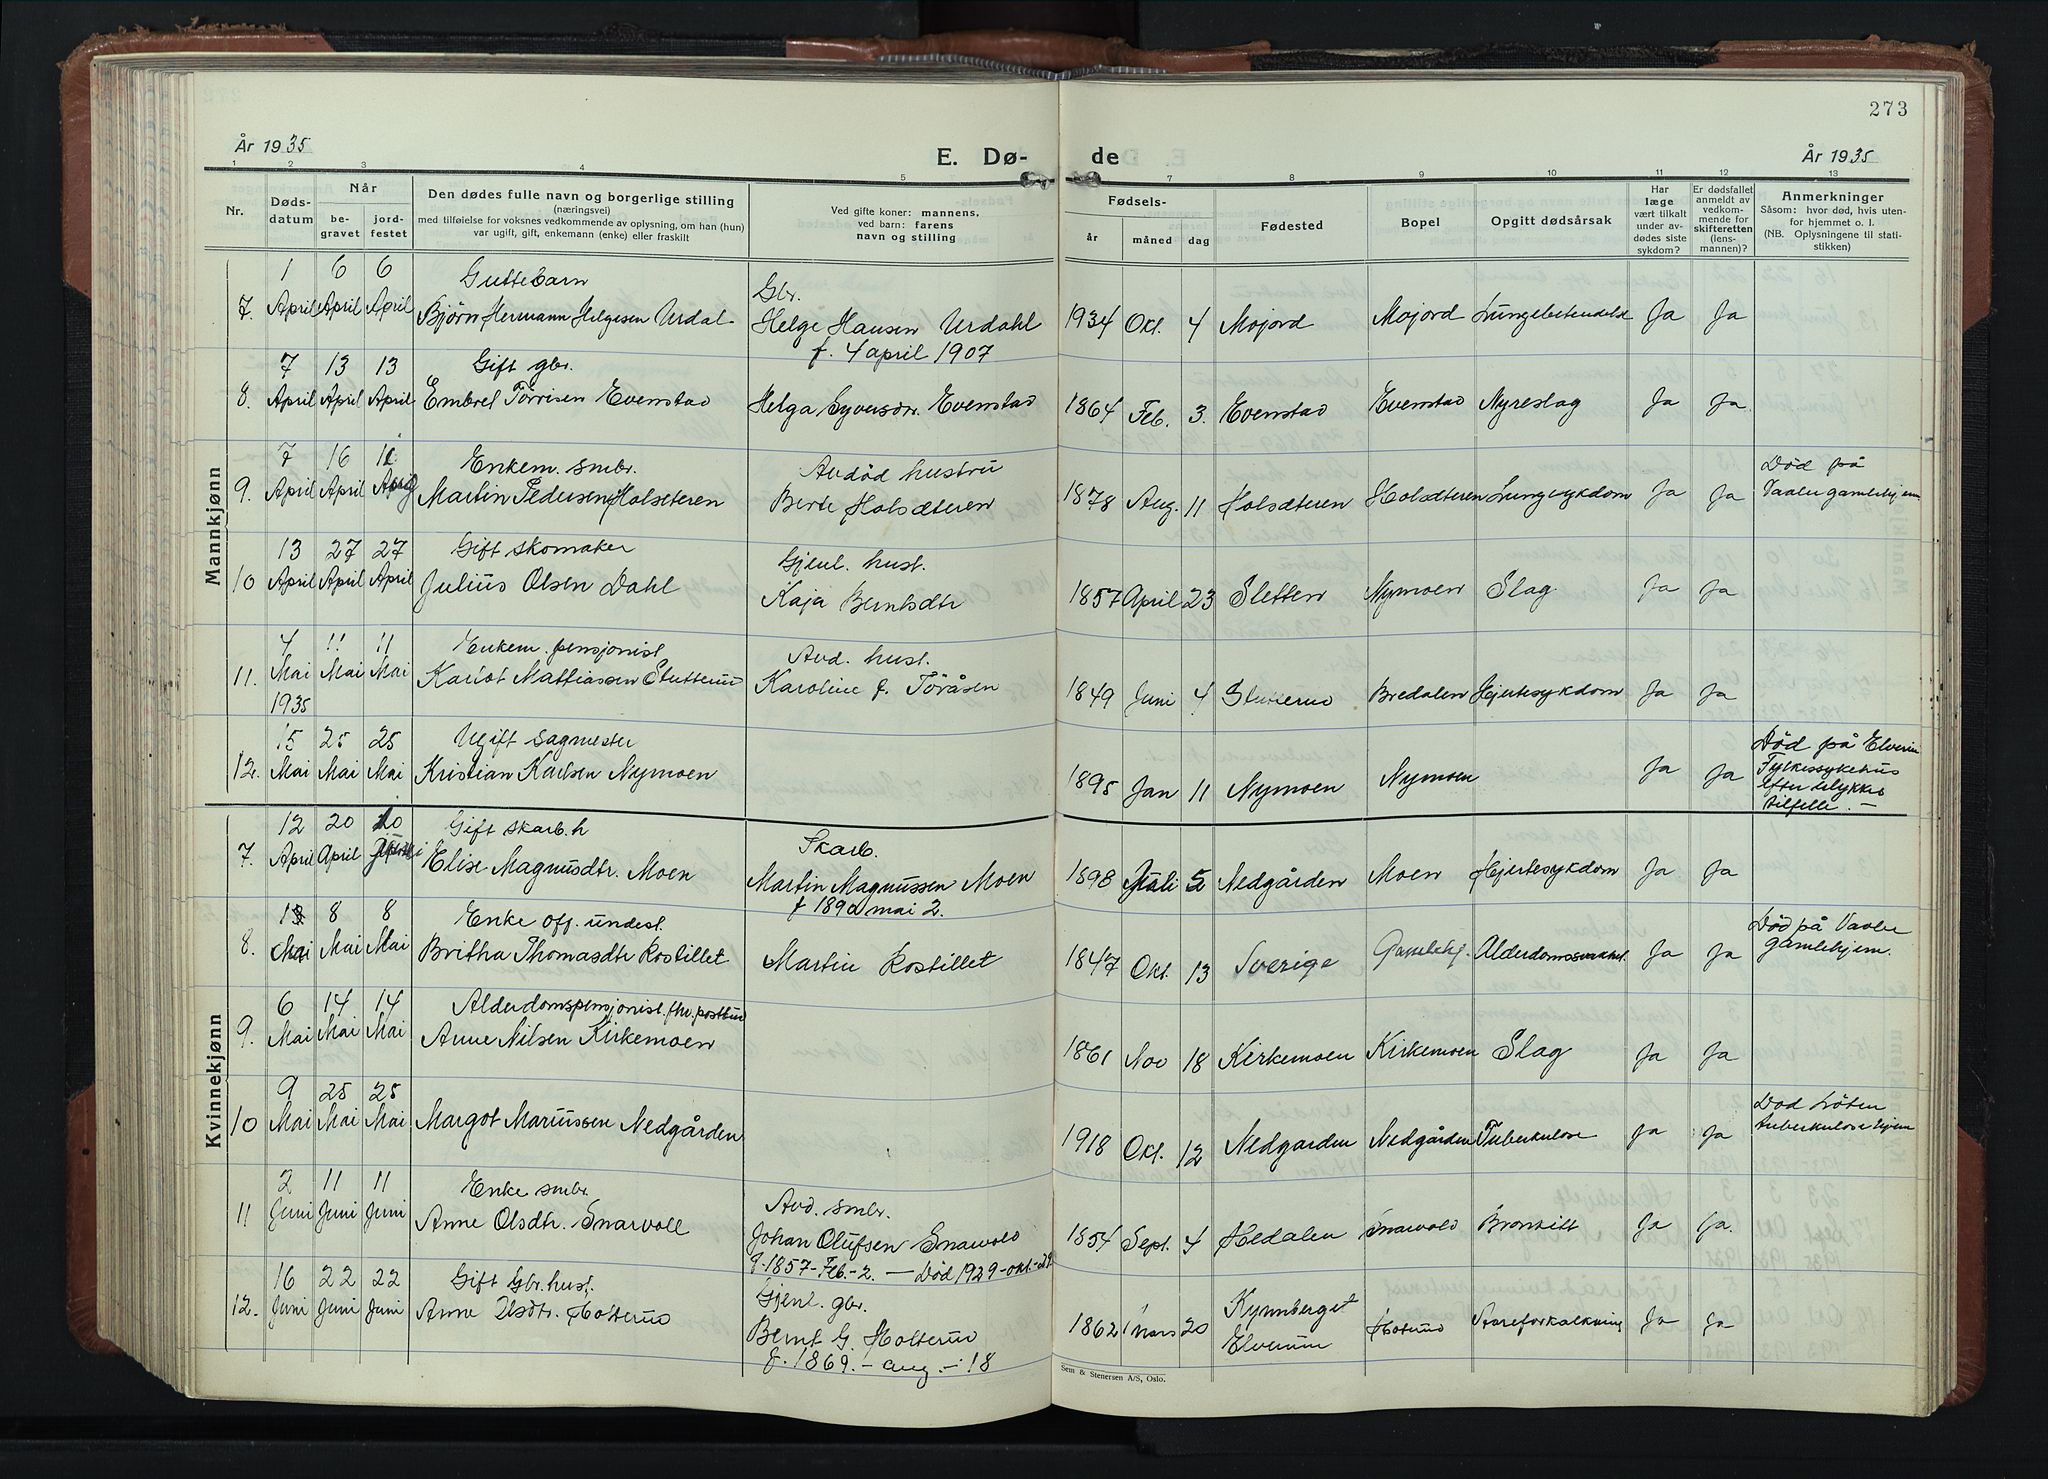 273
År 1935
E. Dø-
de
År 1935
1 2 3 4 5 7 8 9 10 11 12 13
Nr.
Døds-
datum
Når
be-
gravet
jord-
festet
Den dødes fulle navn og borgerlige stilling
(næringsvei)
med tilføielse for voksnes vedkommende av oplysning, om han (hun)
var ugift, gift, enkemann (enke) eller fraskilt
Ved gifte koner: mannens,
ved barn: farens
navn og stilling
Fødsels-
år måned dag
Fødested
Bopel
Opgitt dødsårsak
Har
læge
vært tilkalt
under av-
dødes siste
sykdom?
Er dødsfallet
anmeldt av
vedkom-
mende for
skifteretten
(lens-
mannen)?
Anmerkninger
Såsom: hvor død, hvis uten-
for hjemmet o. l.
(NB. Oplysningene til stati-
stikken)
Mannkjønn
1 6 6 Guttebarn Gbr.
7. April April April Bjørn Hermann Helgesen Urdal Helge Hansen Urdahl 1934 Okt. 4 Mojord Mojord Lungebetendelse Ja Ja
f. 4 april 1907
7 13 13 Gift gbr.
8. April April April Embret Torrisen Evenstad Helga Syversdr. Evenstad 1864 Feb. 3. Evenstad Evenstad Nyreslag Ja Ja.
7 16 Enkem. smbr. Avdød hustru Død på
9. April April April Martin Pedersen Holseteren Berte Holsæteren 1878 Aug. 11 Holsæteren Holsæteren Lungesykdom Ja Ja Vaaler gamlehjem
13 27 27 Gift skomaker Gjenl. hust.
10 April April April Julius Olsen Dahl Kaja Berntsdtr 1857 April 23 Sletten Nymoen Slag Ja Ja
4 11 11 Enkem. pensjonist Avd. hust.
11. Mai Mai Mai Karlot Mattiassen Stutterud Karoline f. Toråsen 1849 Juni 4 Stutterud Bredalen Hjertesykdom Ja Ja
1935
15 25 25 Ugift sagmester Død på Elverum
12. Mai Mai Mai Kristian Karlsen Nymoen 1895 Jan 11 Nymoen Nymoen Ja Ja Fylkessykehus
efter ulykkes
tilfelle. —
Kvinnekjønn
12 20 Gift skarb. h Skarb.
7. April April Elise Magnusdtr. Moen Martin Magnussen Moen 1898 Juli 5 Nedgården Moen Hjertesykdom Ja Ja
f 1890 mai 2.
8 8 Enke off. underst. Død på Vaaler
8. Mai Mai Mai Britha Thomasdtr Rostillet Martin Rostillet 1847 Okt. 13 Sverige Gamlehj. Alderdomssvakhet. Ja Ja gamlehjem.
6 14 14 Alderdomspensjonist, fhv. postbud
9. Mai Mai Mai Anne Nilsen Kirkemoen 1861 Nov 18 Kirkemoen Kirkemoen Slag Ja Ja
9 25 25 Død Løten
10 Mai Mai Mai Margot Mariussen Nedgården 1918 Okt. 12 Nedgarden Nedgården Tuberkulose Ja Ja tuberkulosehjem
2 11 11 Enke smbr. Avd. smbr.
11 Juni Juni Juni Anne Olsdtr. Snarvoll Johan Olufsen Snarvold 1854 Sept. 4 Hedalen Snarvold Bronkitt Ja Ja.
f. 1857 - Feb. - 2. — Død 1929 - okt - 28
16 22 22 Gift Gbr. hust. Gjenl. gbr. Kynnberget
12. Juni Juni Juni Anne Olsdtr. Holterud Bernt G. Holterud 1862 Mars 20 Elverum Holterud Aareforkalkning Ja Ja
f. 1869. — Aug. — 18
Sem & Stenersen A/S, Oslo.